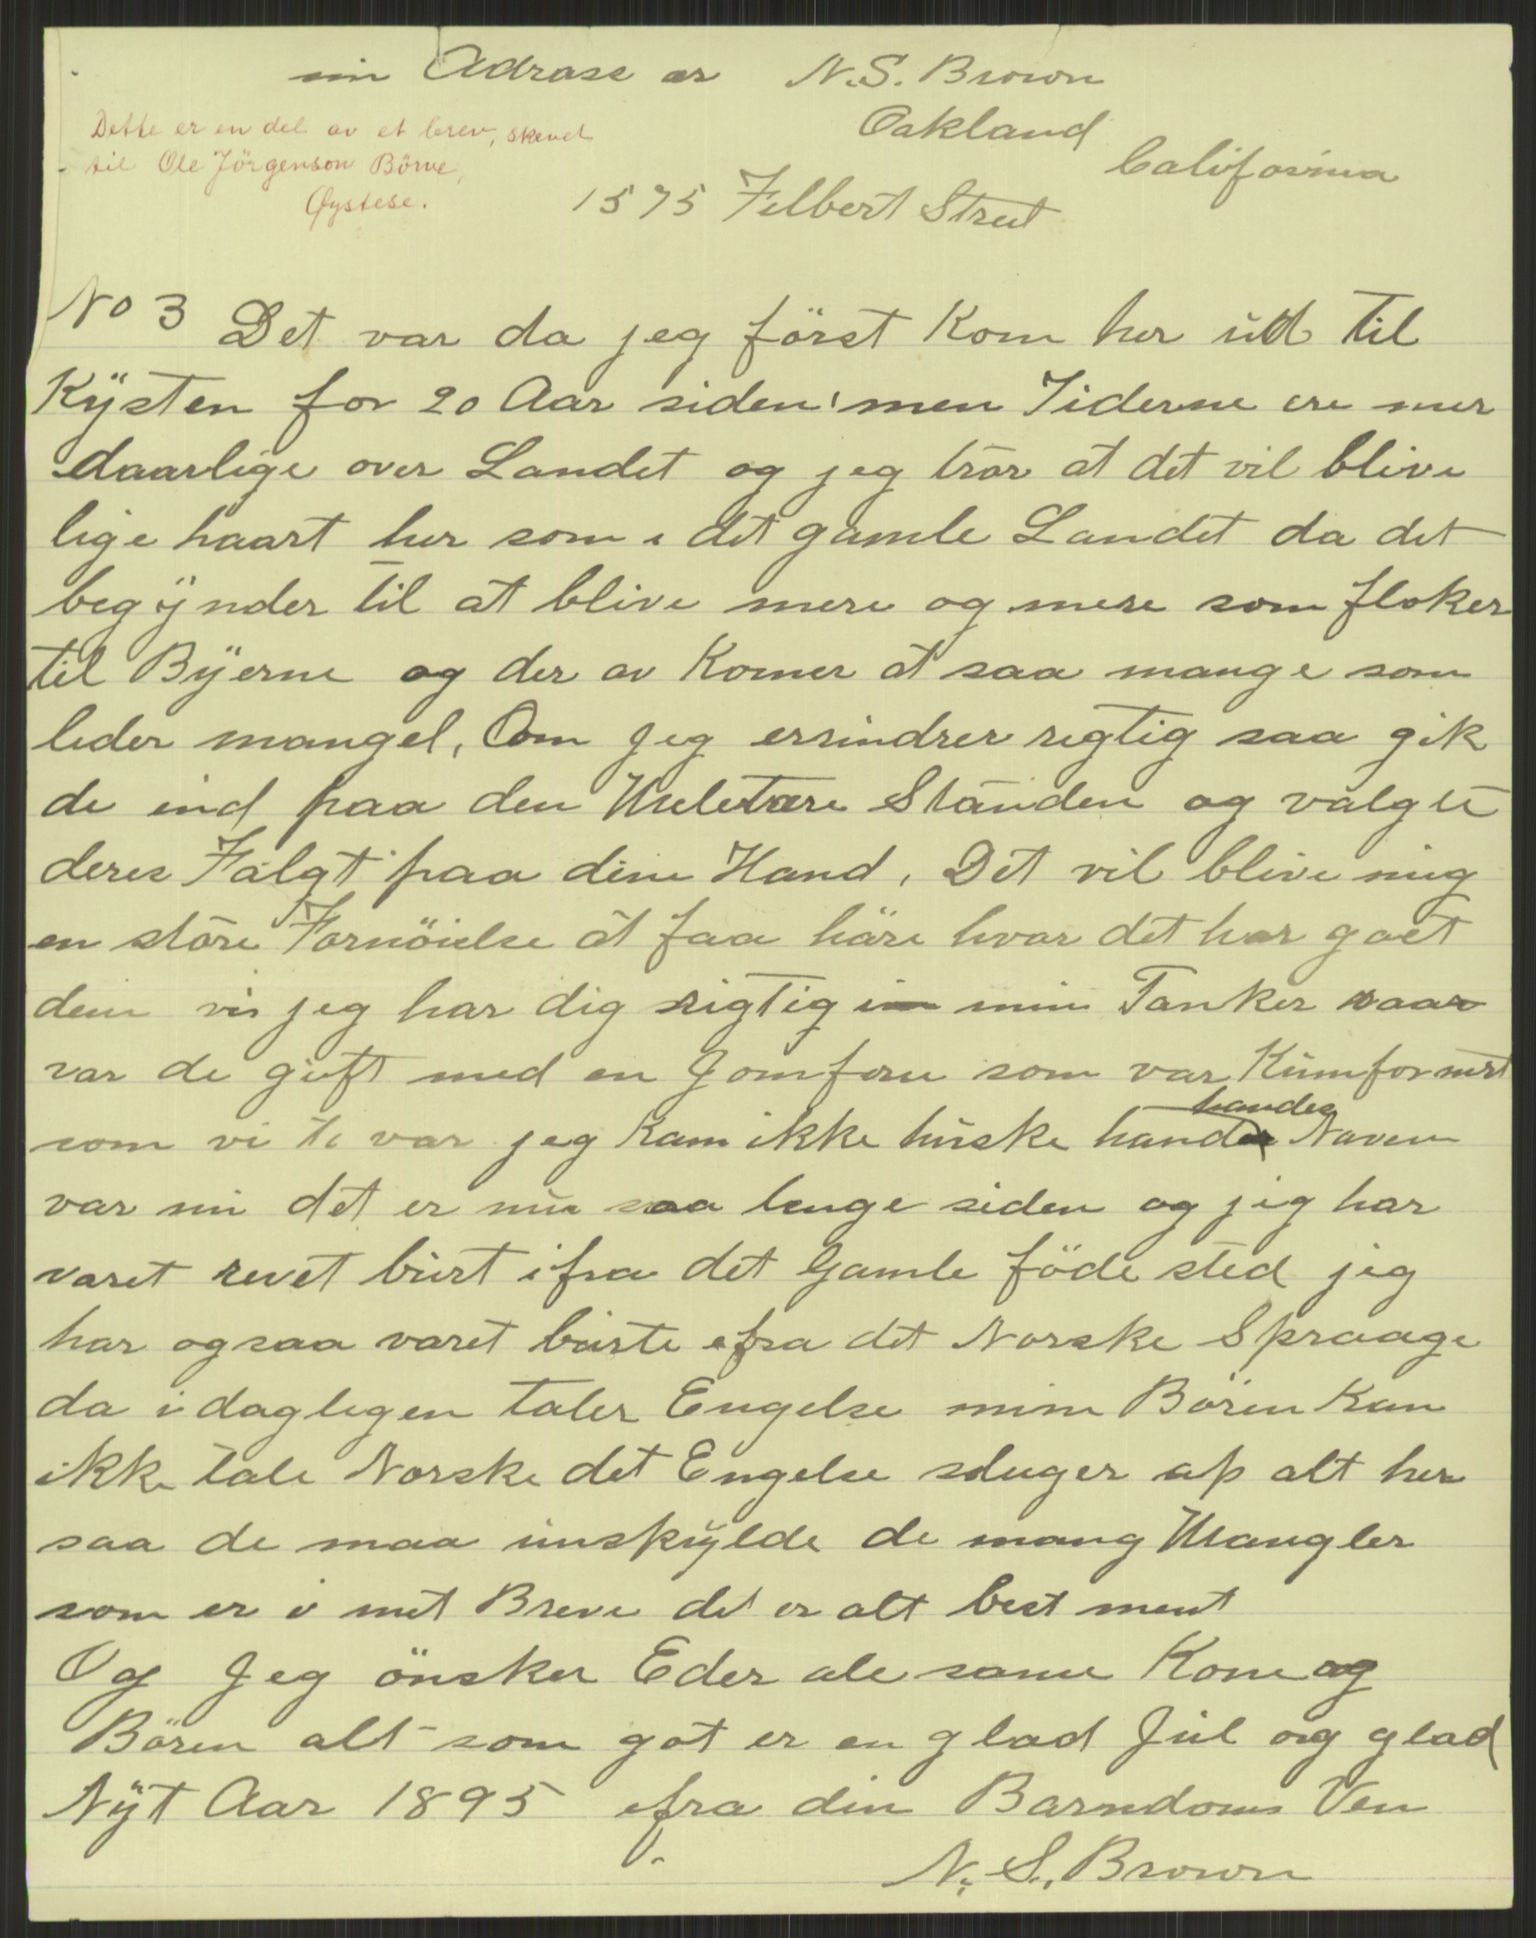 min Adrase er N.S. Brown
Oakland
California
1575 Filbert Street
Dette er en del av et brev, skrevet
til Ole Jörgenson Börve,
Öystese.
No 3 Det var da jeg först Kom her ud til
Kÿsten for 20 Aar siden, men Tiderne ere mer
daarlige over Landet og jeg tror at det vil blive
lige haart her som i det gamle Landet da det
begÿnder til at blive mere og mere som floker
til Bÿerne og der av Komer at saa mange som
lider mangel, Om Jeg errindrer regtig saa gik
de ind paa den Meletære Standen og valgte
deres Falgt paa dem Haand, Det vil blive mig
en store Fornöielse at faa häre hvor det har gaaet
dem vis jeg har dig rigtig i min Tanker saa
var de gieft med en Jomfru som var
som vi jeg Kan ikke huske handes Naven
handes
var mi det er nu saa lenge siden og jeg har
varet revet burt ifra det Gamle föde sted jeg
har ogsaa varet burte efra det Norske Spraage
da i daglegen taler Engelse mine Bören Kan
ikke tale Norske det Engelse sluger ap alt her
saa de maa unskÿlde de mang Mangler
som er i mit Breve det er alt best ment
Og Jeg önsker Eder ale same Kone og
Bören alt som got er en glad Jul og glad
Nÿt Aar 1895 efra din Barndoms Ven
N. S. Brown